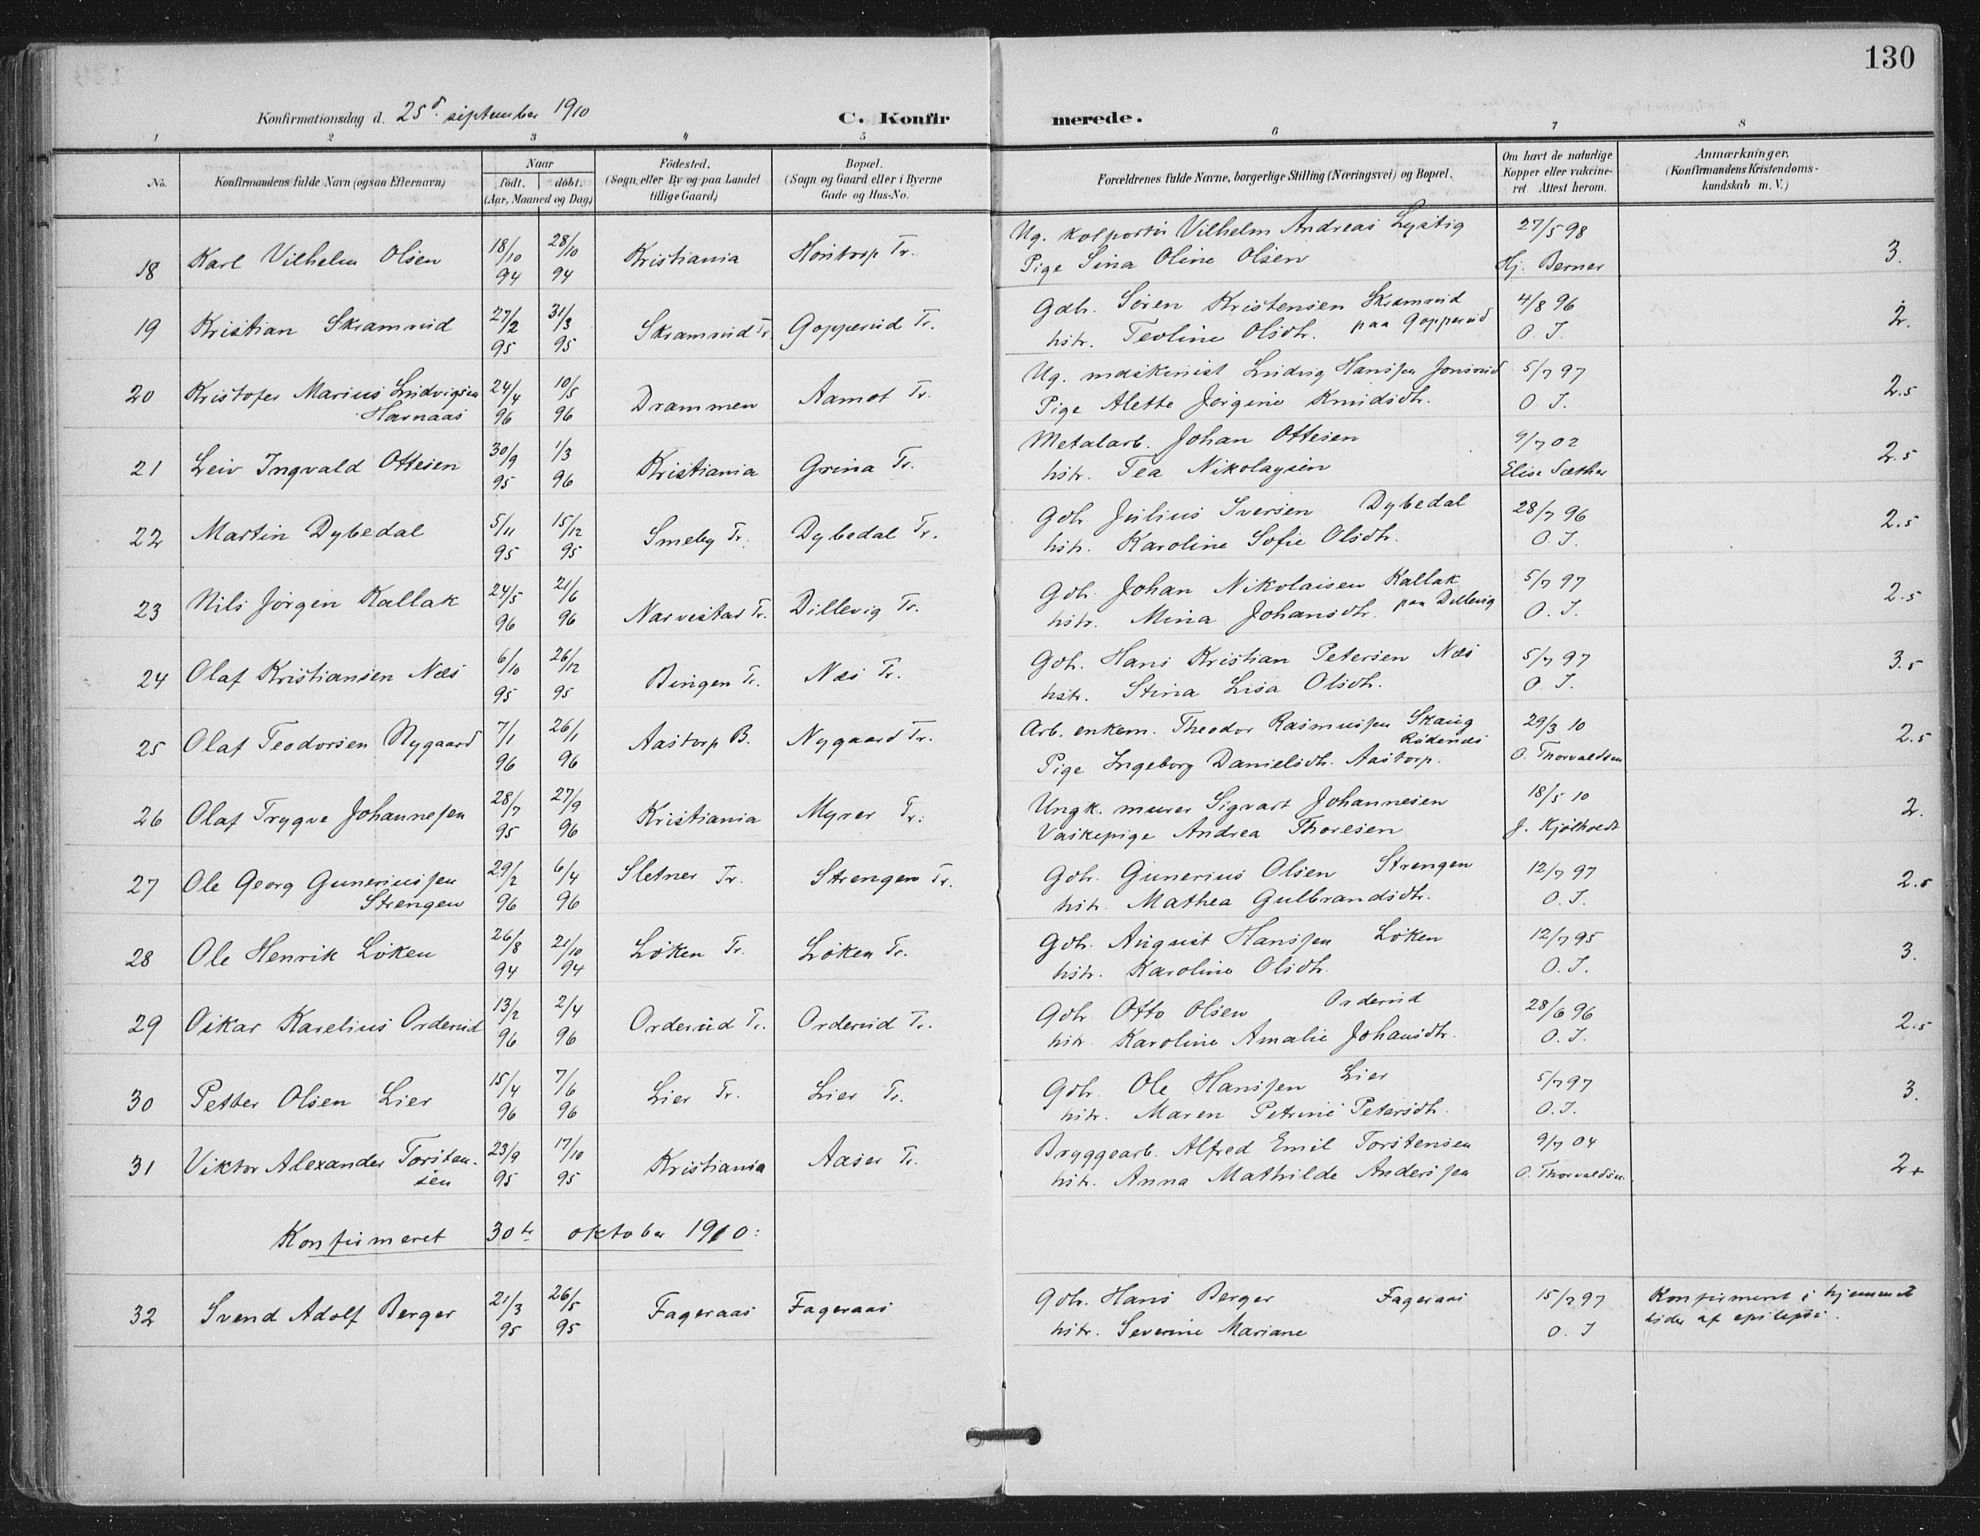 130
Konfirmationsdag d. 25de september 1910
C. Konfirmerede.
1 2 3 4 5 6 7 8
No.
Konfirmandens fulde Navn (ogsaa Efternavn)
Naar
født. døbt.
(Aar, Maaned og Dag)
Födested.
(Sogn eller By og paa Landet
tillige Gaard)
Bopæl.
(Sogn og Gaard eller i Byerne
Gade og Hus-No.
Forældrenes fulde Navne, borgerlige Stilling (Næringsvei) og Bopæl.
Om havt de naturlige
Kopper eller vakcine-
ret Attest herom.
Anmærkninger.
(Konfirmandens Kristendoms-
kundskab m. V.)
18 Karl Vilhelm Olsen 18/10 94 28/10 94 Kristiania Hòntorp Tr. Ug. kolportør Vilhelm Andreas Lystig 27/5 98 3.
Pige Lina Oline Olsen Hj. Berner
19 Kristian Skramrud 27/2 95 31/3 95 Skramrud Tr. Gopperud Tr. Gdb. Søren Kristensen Skramrud 4/8 96 2.
hstr. Teoline Olsdtr. paa Gopperud O. J.
20 Kristofer Marius Ludvigsen 24/4 96 10/5 96 Drammen Aamot Tr. Ug. maskinist Ludvig Hanssen Jonsrud 5/7 97 2.5
Harnaas Pige Alette Jørgine Knudsdtr. O. J.
21 Leiv Ingvald Ottesen 30/9 95 1/3 96 Kristiania Grina Tr. Metalarb. Johan Ottesen 9/7 02 2.5
hstr. Tea Nikolaysen Elise Sæther
22 Martin Dybedal 5/11 95 15/12 95 Smeby Tr. Dybedal Tr. Gdb. Julius Iversen Dybedal 28/7 96 2.5
hstr. Karoline Sofie Olsdtr. O. J.
23 Nils Jørgen Kallak 24/5 96 21/6 96 Narvestad Tr. Dillevig Tr. Gdb. Johan Nikolaisen Kallak 5/7 97 2.5
hstr. Mina Johansdtr. paa Dillevig O. J.
24 Olaf Kristiansen Næs 6/10 95 26/12 95 Bingen Tr. Næs Tr. Gdb. Hans Kristian Petersen Næs 5/7 97 3.5
hstr. Stina Lisa Olsdtr. O. J.
25 Olaf Teodorsen Nygaard 7/1 96 26/1 96 Aastorp B. Nygaard Tr. Arb. enkem. Theodor Rasmussen Skaug 29/3 10 2.5
Rødenes
Pige Ingeborg Danielsdtr. Aastorp. O. Thorvaldsen
26 Olaf Trygve Johannesen 28/7 95 27/9 96 Kristiania Myrer Tr. Ungk. murer Sigvart Johannesen 18/5 10 2.
Vaskepige Andrea Thoresen J. Kjølstvedt
27 Ole Georg Gunerius​sen 29/2 96 6/4 96 Sletner Tr. Strengen Tr. Gdb. Gunerius Olsen Strengen 12/7 97 2.5
Strengen hstr. Mathea Gulbrandsdtr. O. J.
28 Ole Henrik Løken 26/8 94 21/10 94 Løken Tr. Løken Tr. Gdb. August Hanssen Løken 12/7 95 3.
hstr. Karoline Olsdtr. O. J.
29 Oskar Karelius Orderud 13/2 96 2/4 96 Orderud Tr. Orderud Tr. Gdb. Otto Olsen Orderud 28/6 96 2.5
hstr. Karoline Amalie Johansdtr. O. J.
30 Petter Olsen Lier 15/4 96 7/6 96 Lier Tr. Lier Tr. Gdb. Ole Hanssen Lier 5/7 97 3.
hstr. Maren Petrine Petersdtr. O. J.
31 Viktor Alexander Torsten- 23/9 95 17/10 95 Kristiania Aaser Tr. Bryggearb. Alfred Emil Torstensen 9/7 04 2+
sen hstr. Anna Mathilde Anderssen O. Thorvaldsen
Konfirmeret 30te oktober 1910:
32 Svend Adolf Berger 21/3 95 26/5 95 Fageraas Fageraas Gdb. Hans Berger Fageraas 15/7 97 Konfirmeret i hjemmet
hstr. Severine Mariane O. J lider af epilepsi.